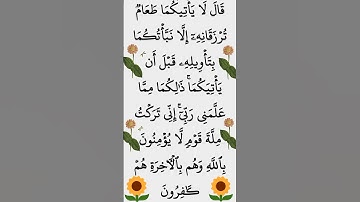 قَالَ لَا يَأْتِيكُمَا طَعَامٌ
تُرْزَقَانِهِۦٓ إِلَّا نَبَّأْتُكُمَا
بِتَأْوِيلِهِۦ قَبْلَ أَن
يَأْتِيَكُمَا ۚ ذَٰلِكُمَا مِمَّا
عَلَّمَنِى رَبِّىٓ ۚ إِنِّى تَرَكْتُ
مِلَّةَ قَوْمٍ لَّا يُؤْمِنُونَ
بِٱللَّهِ وَهُم بِٱلْءَاخِرَةِ هُمْ
كَٰفِرُونَ